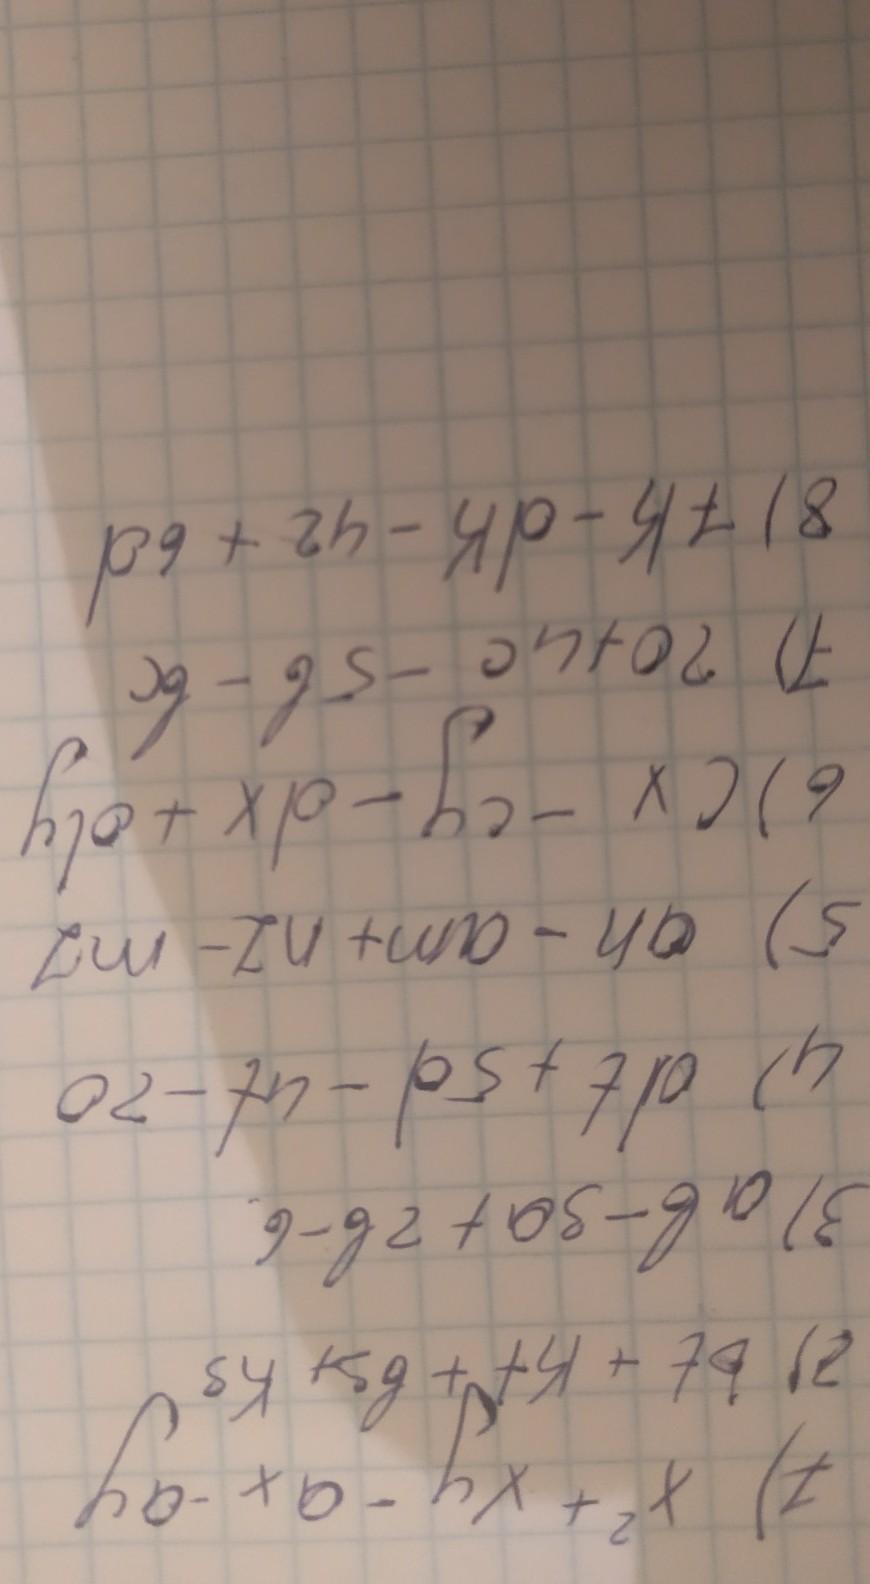 1) x² + xy - ax - ay
2) bt + kt + bs + ks
3) ab - 3a + 2b - 6
4) dt + 5d - 4t - 20
5) an - am + nz - mz
6) cx - cy - dx + dy
7) 20 + 4c - 5b - bc
8) 7k - dk - 42 + 6d